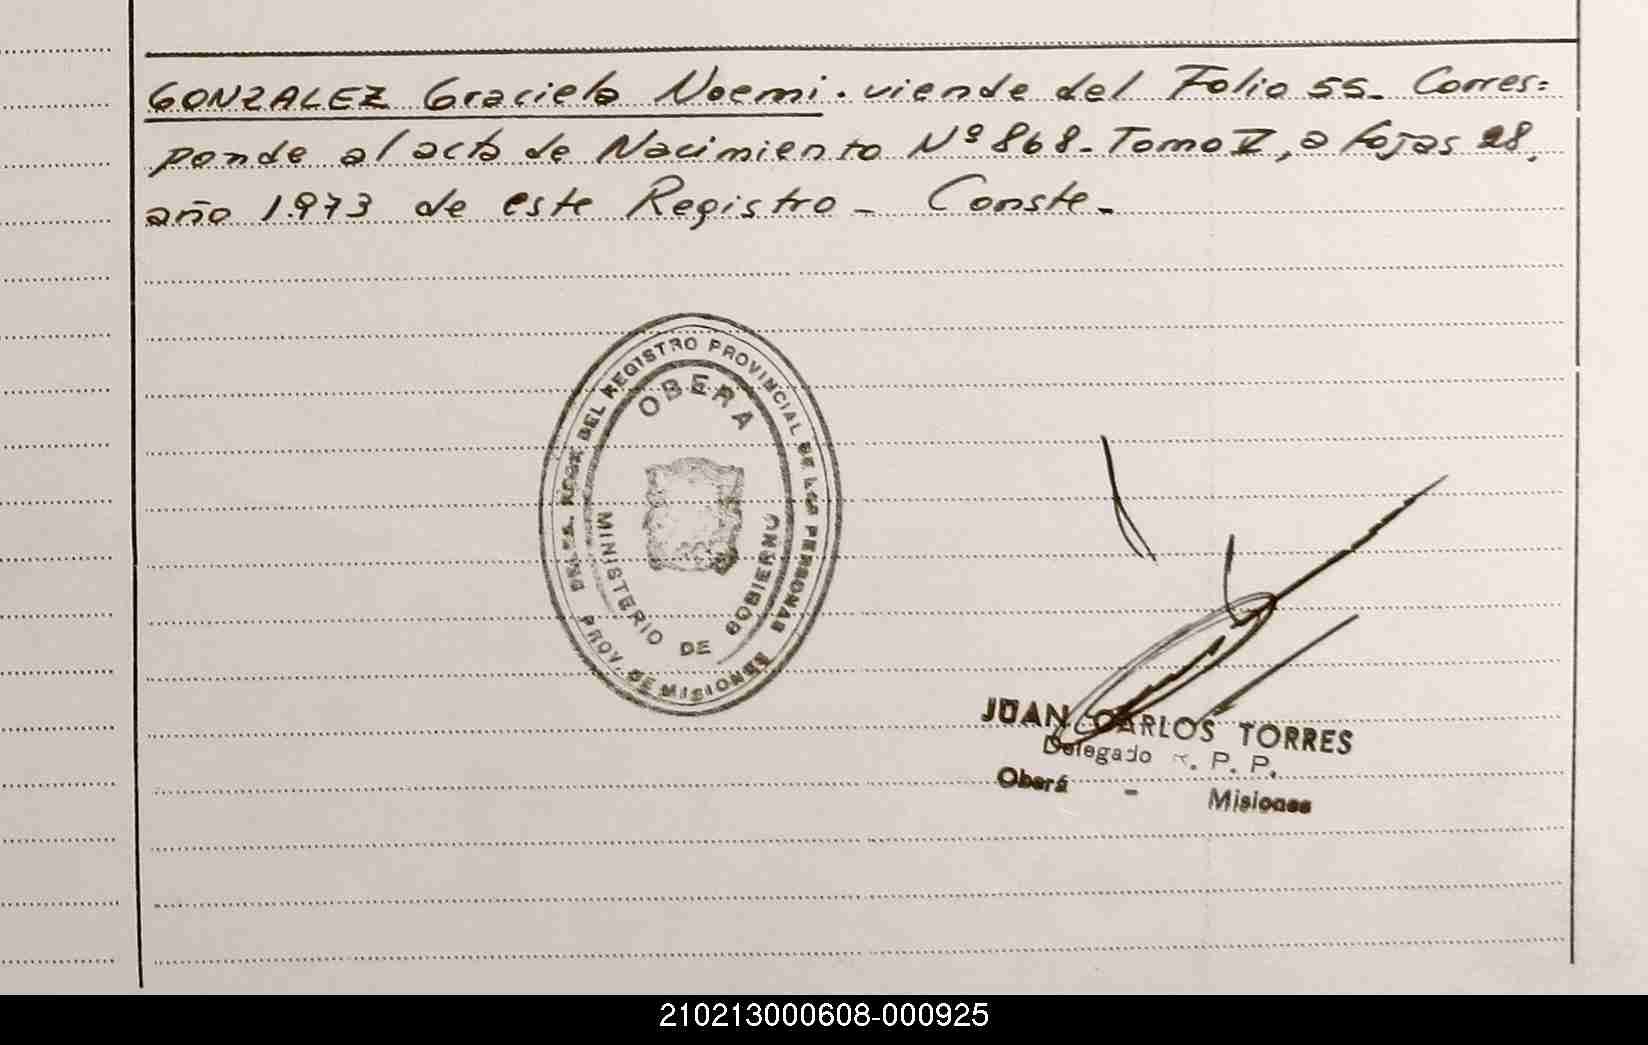 GONZALEZ Graciela Noemi. viende del Folio 55_ Corres=
ponde al acta de Nacimiento Nº 868_ Tomo V, a fojas 28,
año 1.973 de este Registro_ Conste_
DEL REGISTRO PROVINCIAL DE LAS PERSONAS
OBERA
MINISTERIO DE GOBIERNO
PROV. DE MISIONES
JUAN CARLOS TORRES
Delegado R. P. P.
Oberá - Misiones
210213000608-000925